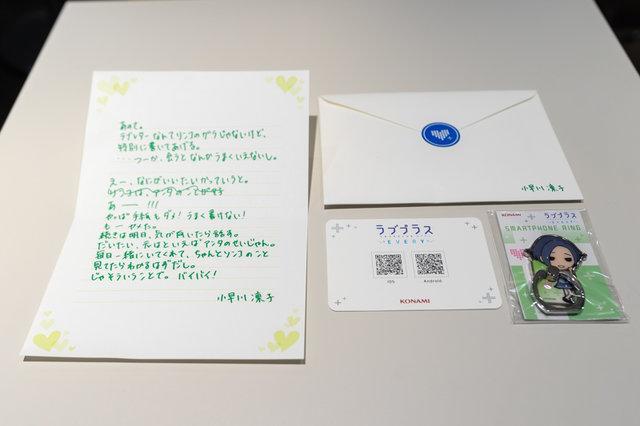 あので。
ラブレターなんてリンコのガラじゃないけど、
特別に書いてあげる。
……つーか、会うとなんかうまくいえないし。
えー、なにがいいたいかっていうと。
リンコは、アンタのことが好
あーー!!!
やっぱ手紙もダメ!うまく書けない!
もーやめた。
続きは明日、気が向いたら話す。
だいたい、元はといえばアンタのせいじゃん。
毎日一緒にいてくれて、ちゃんとリンコのこと
見てたらわかるはずだし。
じゃそういうことで。バイバイ!
小早川凛子
小早川凛子
ラブプラス
EVERY
iOS
Android
KONAMI
KONAMI
ラブプラス
EVERY
SMARTPHONE RING